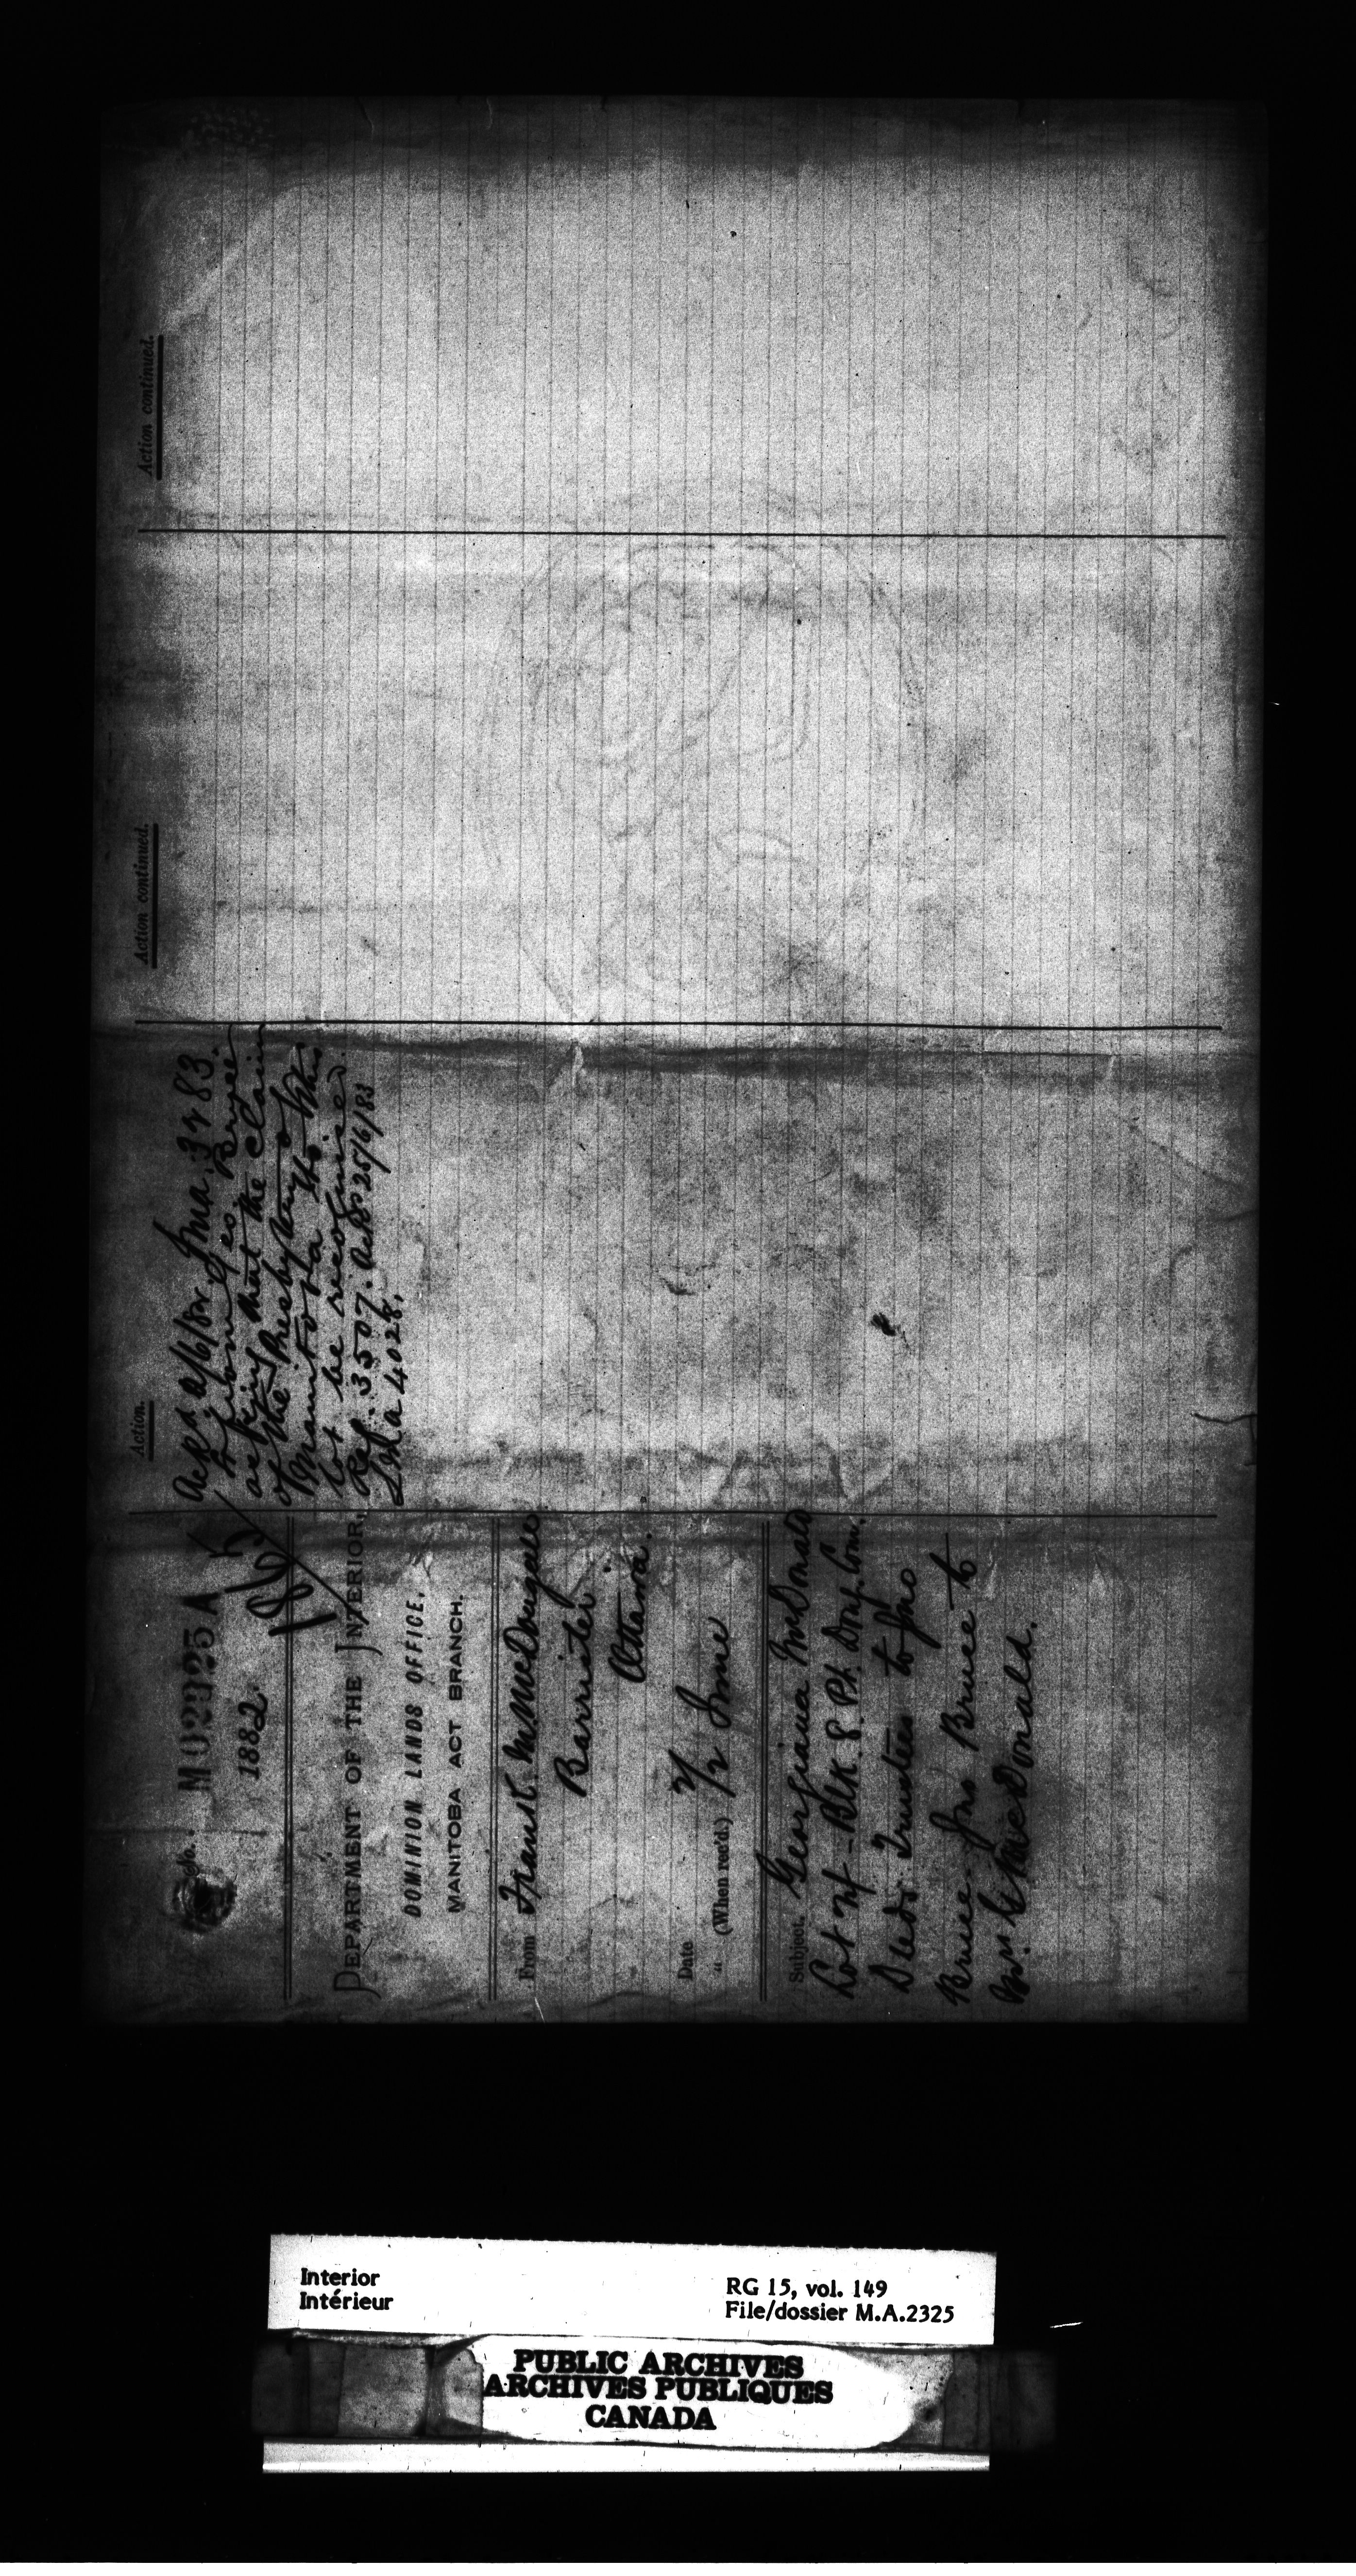 No. M 02325 A
1882.
DEPARTMENT OF THE INTERIOR.
DOMINION LANDS OFFICE.
MANITOBA ACT BRANCH.
From Frank M. McDougall
Barrister
Ottawa.
Date 2/
" (When rec'd.) /2 June
Subject. Georgiana McDonald
Lot 24 - Blk. 8. Pt. Doug. Com.
Deeds Trustees to Jno
Bruce - Jno Bruce to
Wm McDonald.
Action.
Ack'd 2/6/82
asking that the claim
of the Presbytery of
Manitoba to this
lot be recognised.
Ref. 3507. Ack'd 25/6/83
4028.
Action continued.
Action continued.
Interior
Intérieur
RG 15, vol. 149
File/dossier M.A.2325
PUBLIC ARCHIVES
ARCHIVES PUBLIQUES
CANADA